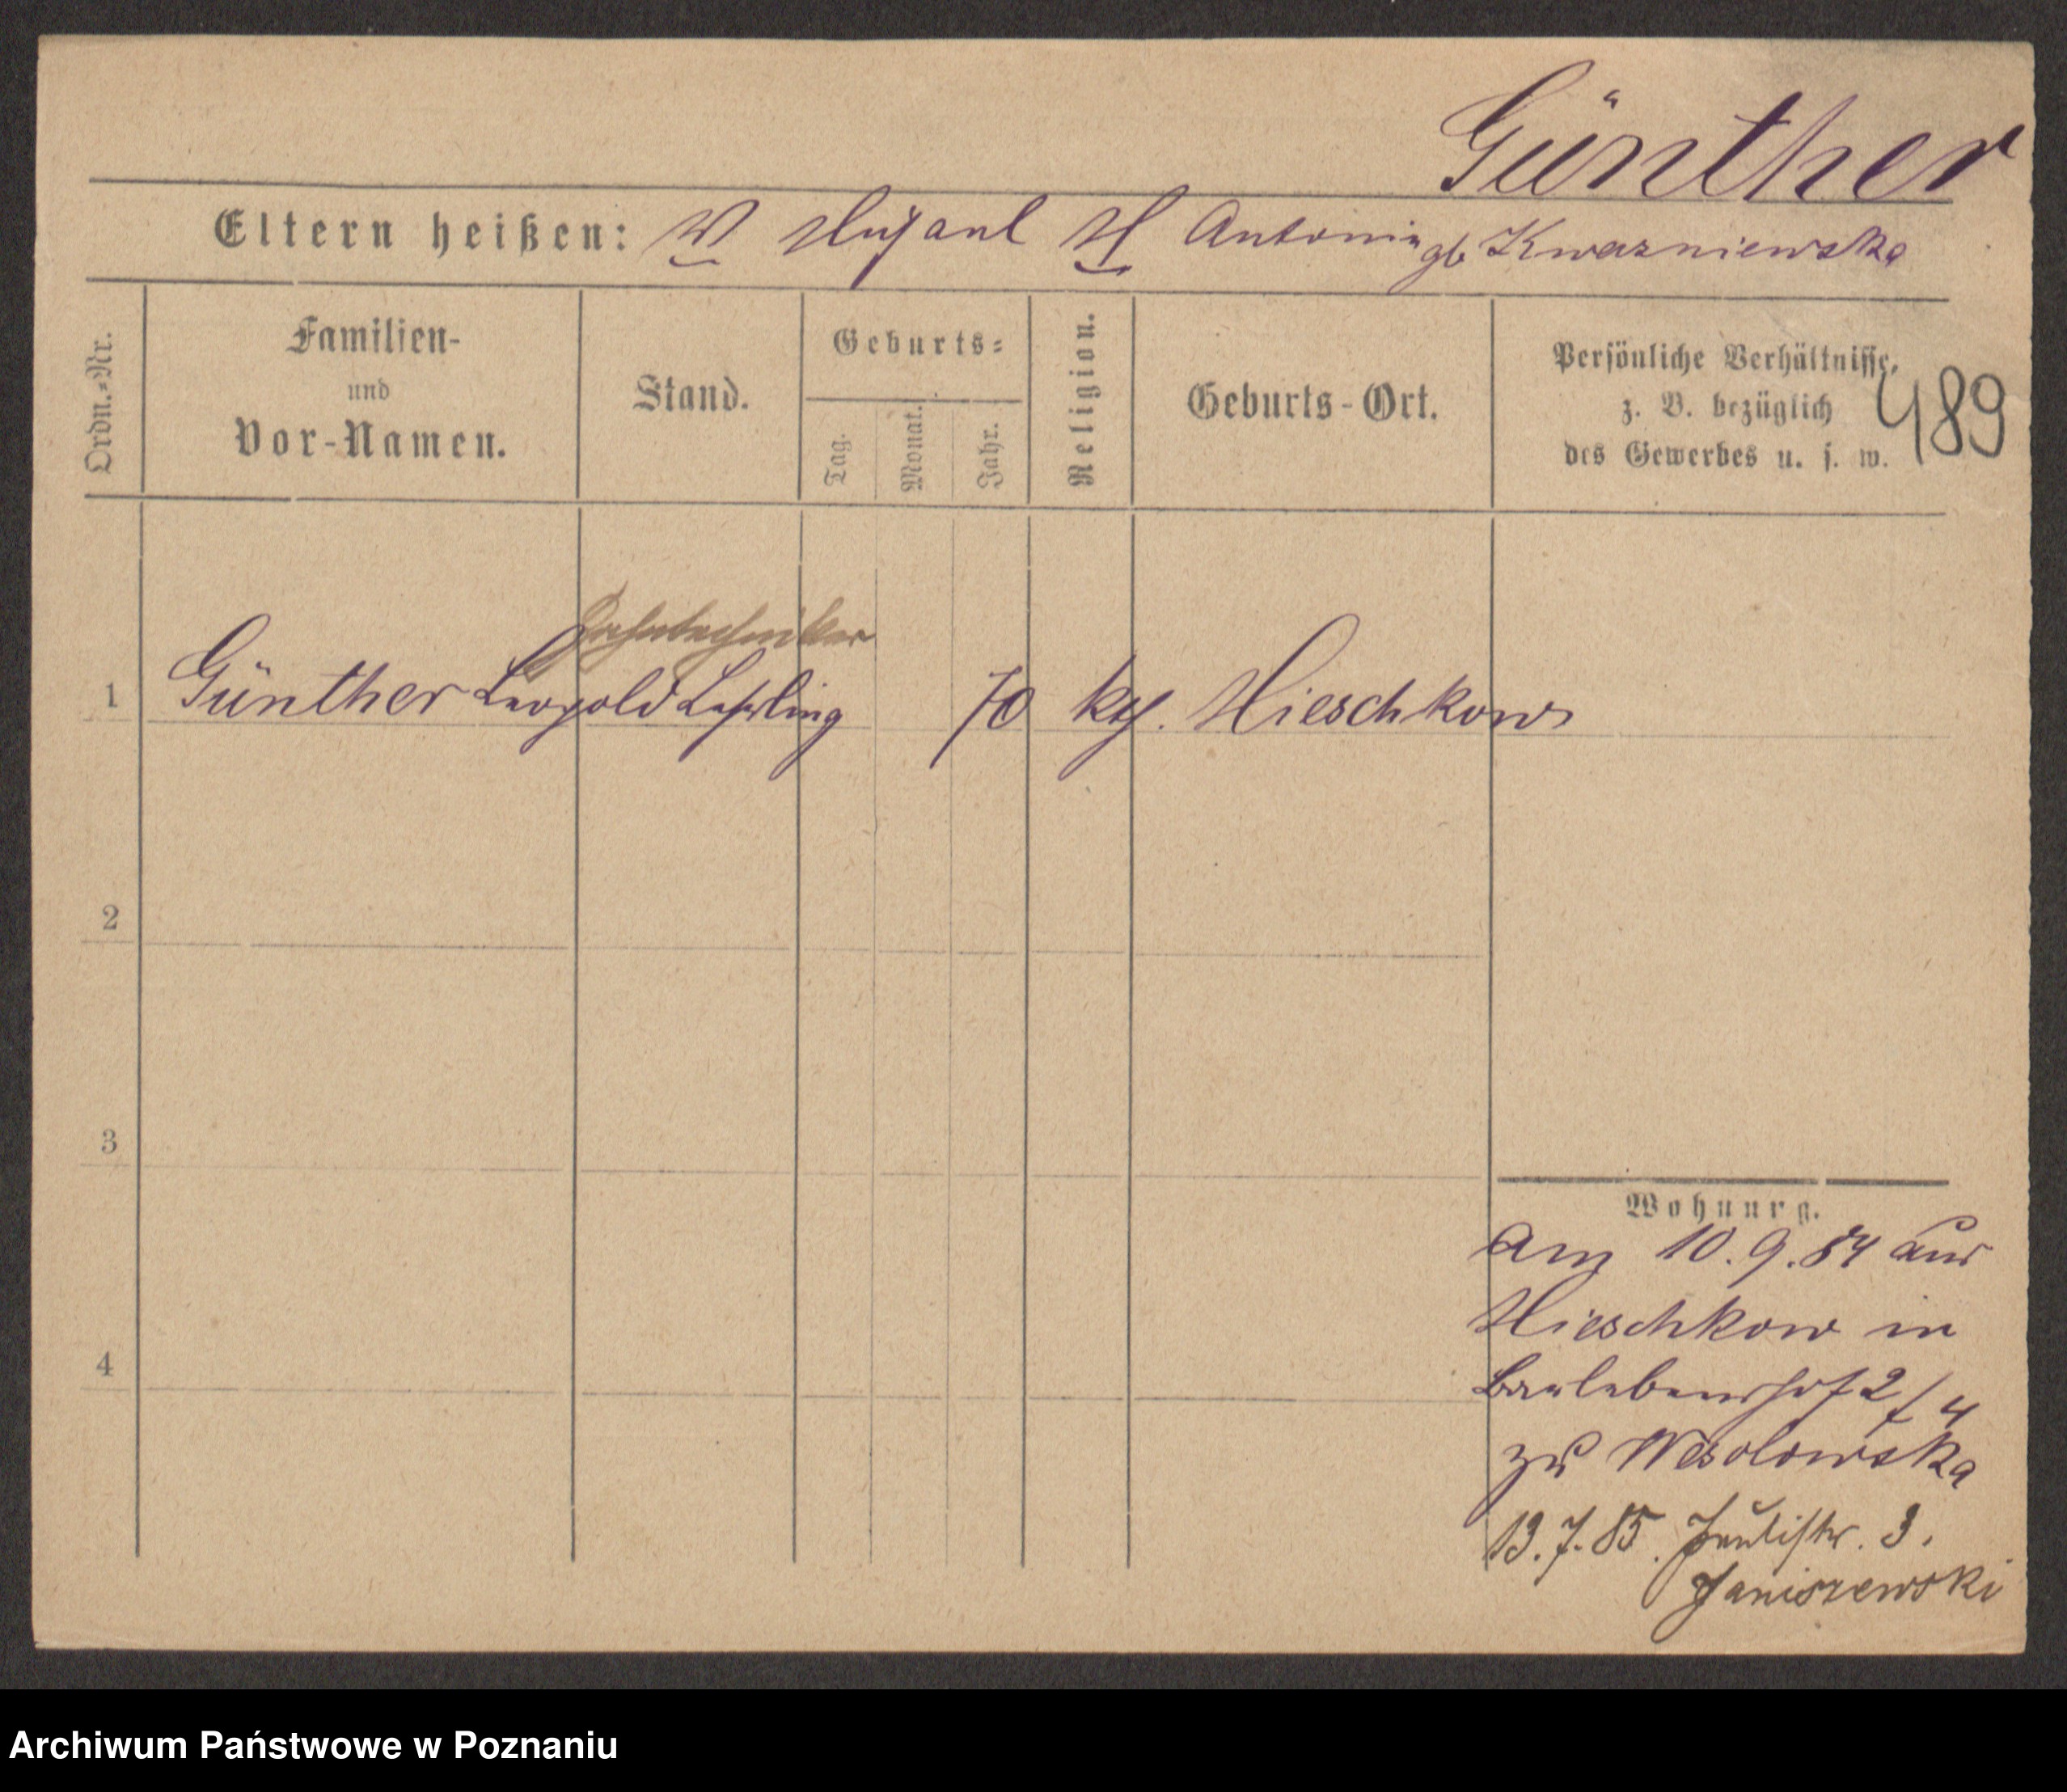 Günther
Eltern heißen: V Michael M Antonin gb Kwasniewska
Ordn.-Nr.
Familien- und Vor-Namen.
Stand.
Geburts-
Tag.
Monat.
Jahr.
Religion.
Geburts-Ort.
Persönliche Verhältnisse,
z. B. bezüglich
des Gewerbes u. s. w.
489
Zahntechniker
1 Günther Leopold Lehrling 70 kth. Mieschkow
2
3
4
Wohnung.
Am 10.9.84 aus
Mieschkow in
2/4
zu Wesolowska
13.7.85. Paulistr. 3.
Janiszewski
Archiwum Państwowe w Poznaniu